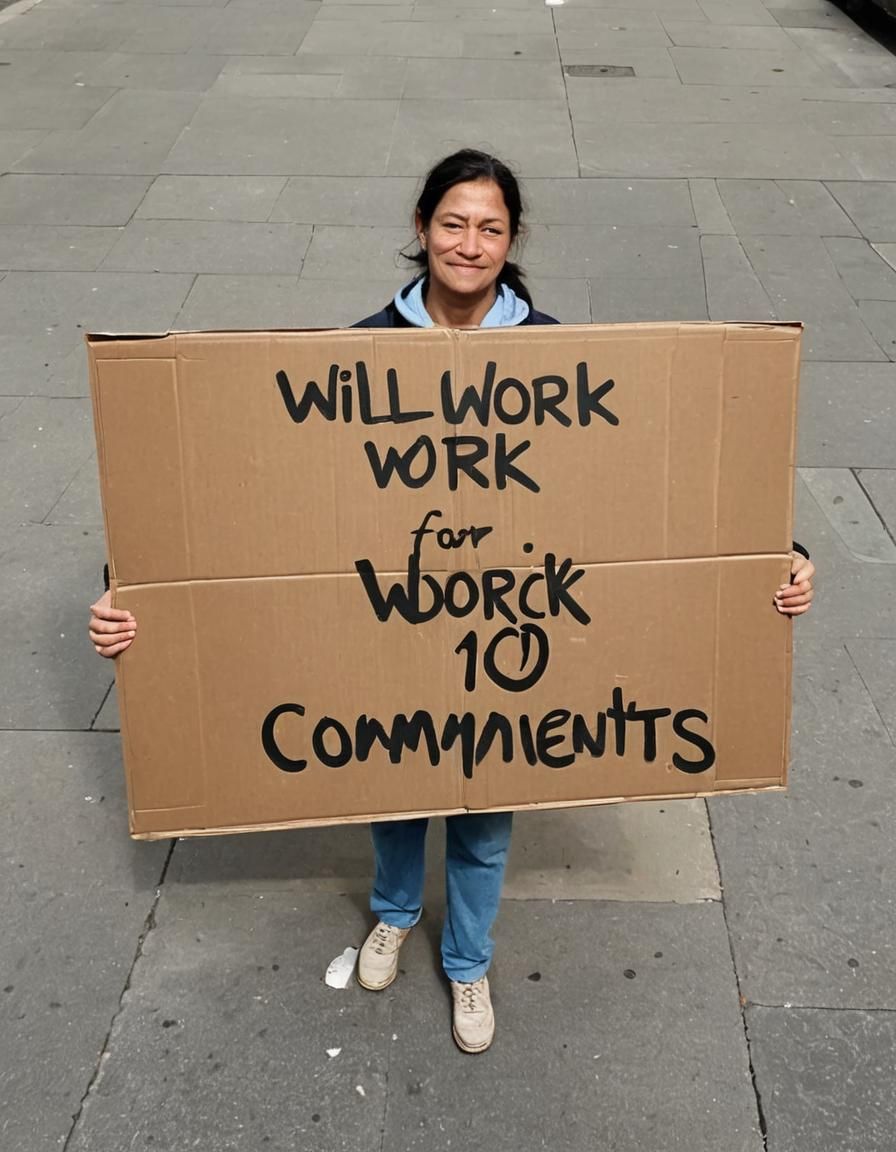 WiLL WORK
WORK
for
WOORCK
10
COMMYNIENTTS